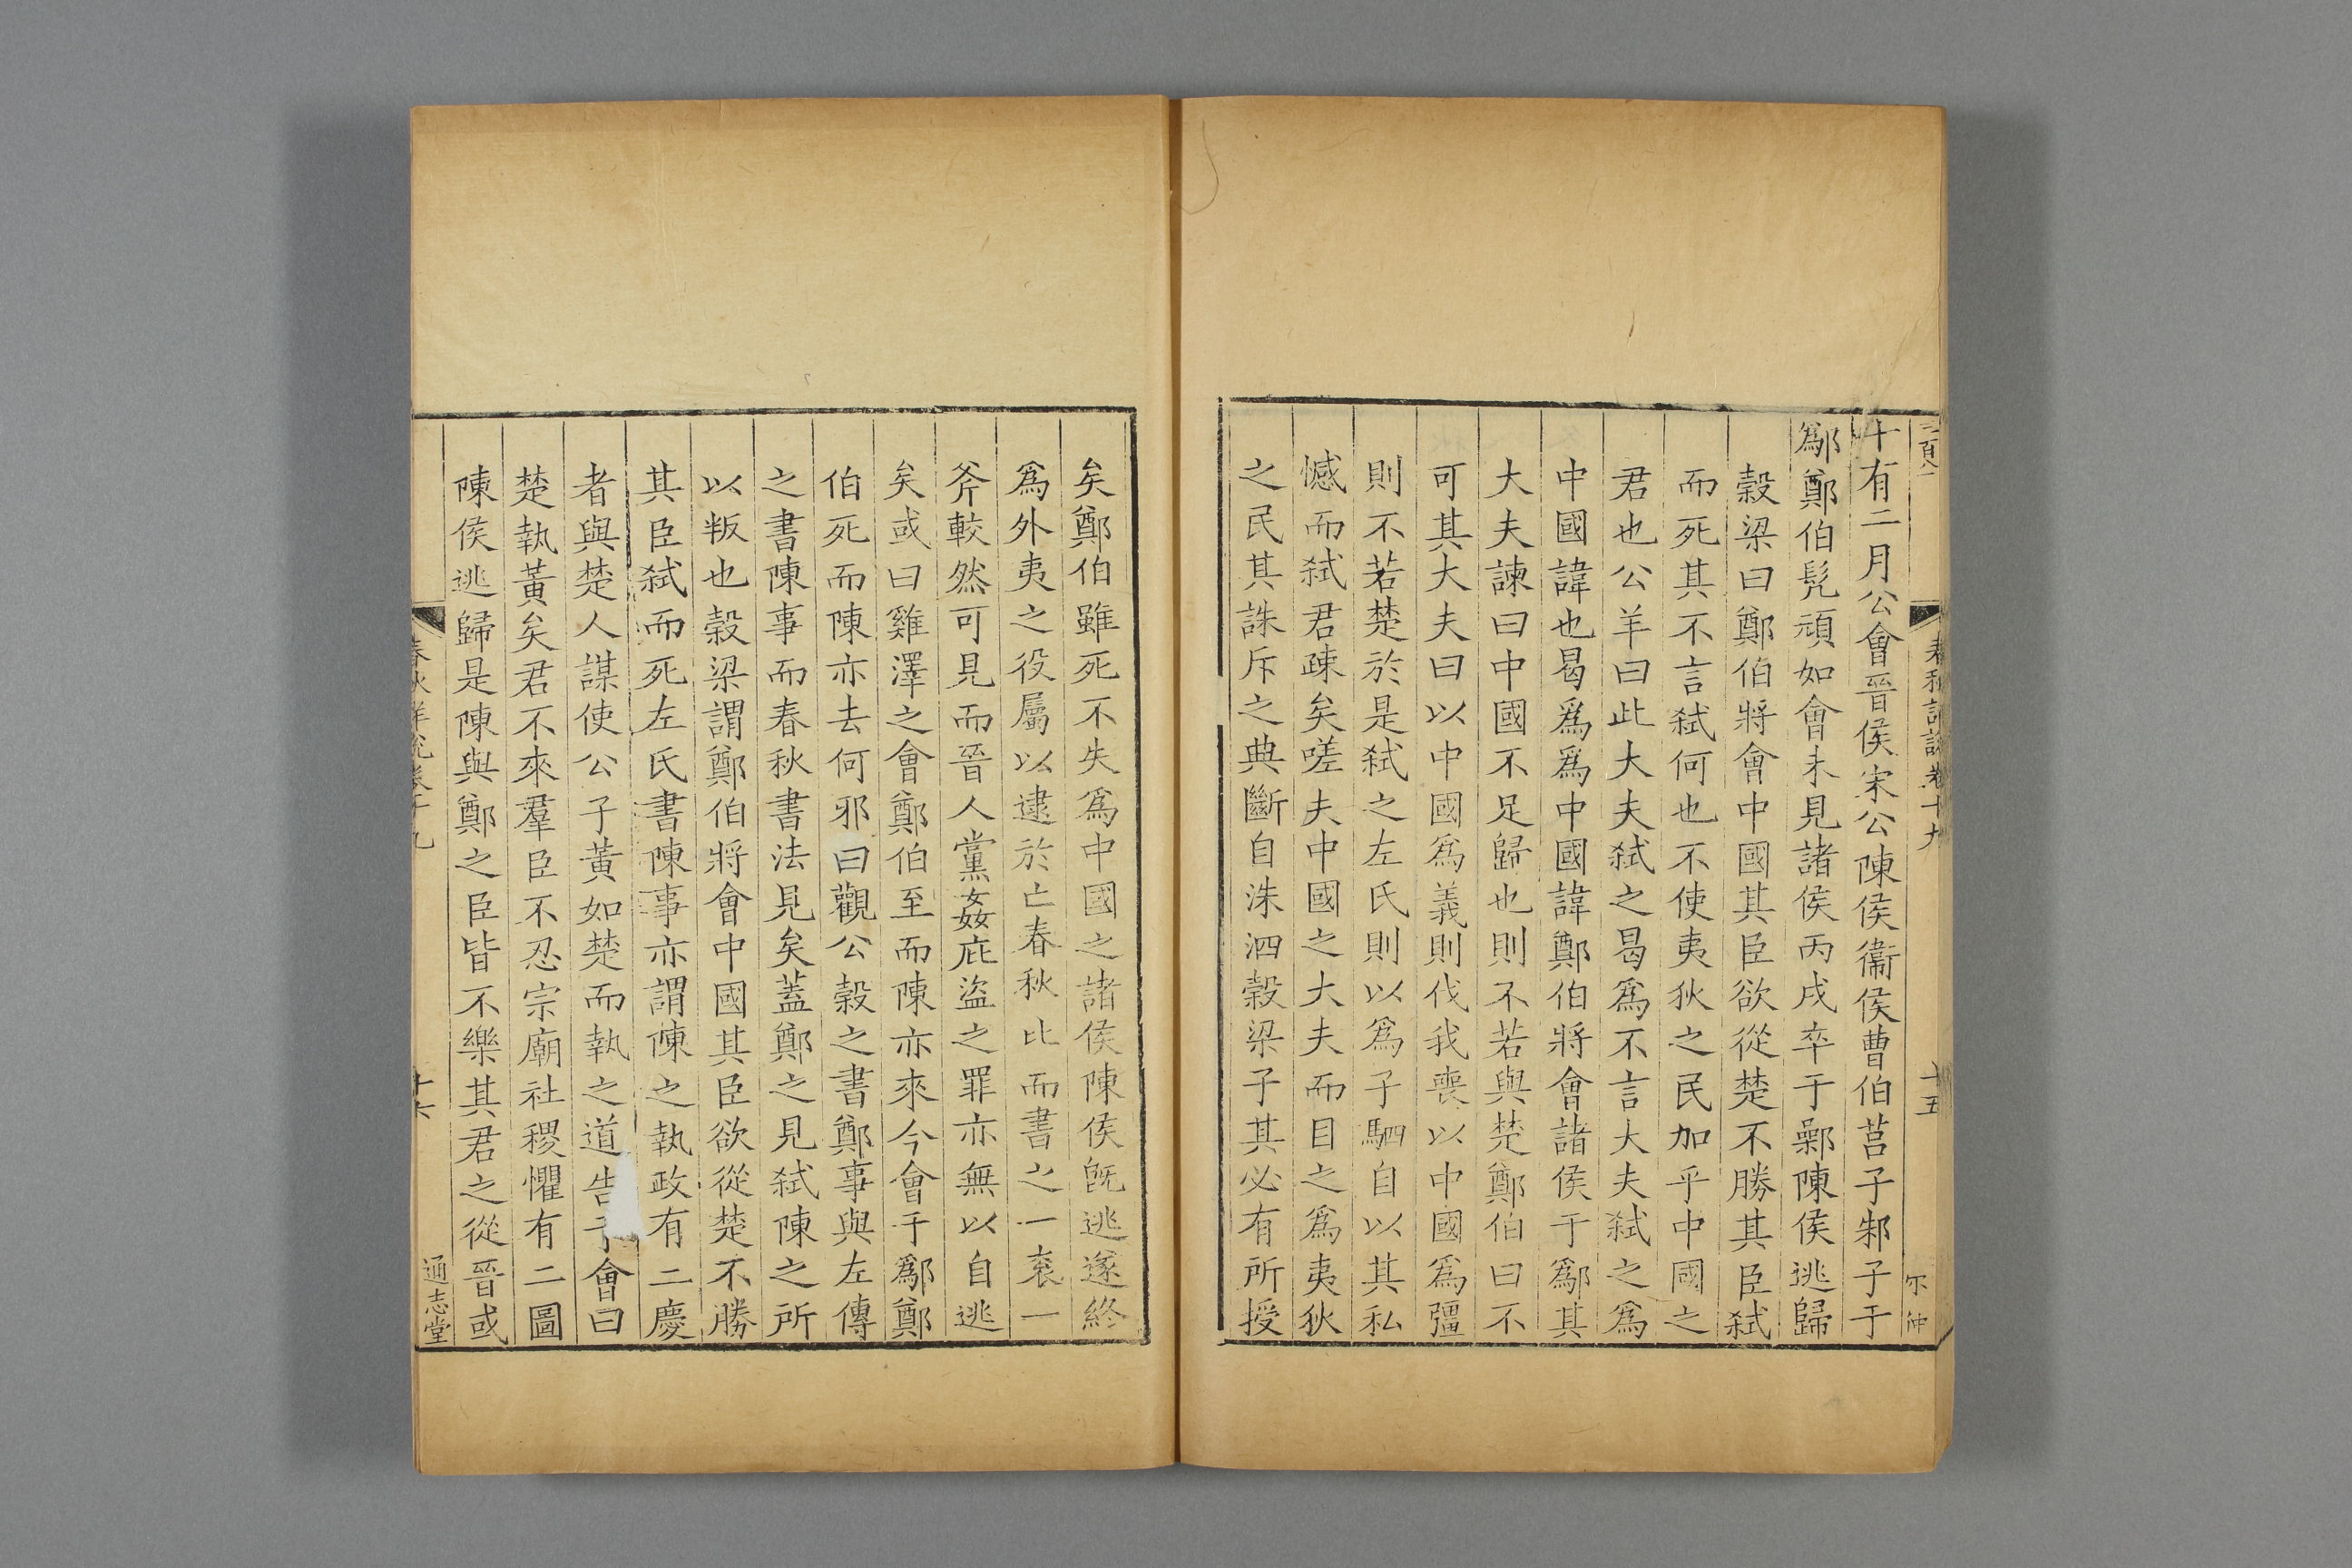 十有二月公會晉侯宋公陳侯衞侯曹伯莒子邾子于
鄬鄭伯髠頑如會未見諸侯丙戌卒于鄵陳侯逃歸
穀梁曰鄭伯將會中國其臣欲從楚不勝其臣弑
而死其不言弑何也不使夷狄之民加乎中國之
君也公羊曰此大夫弑之曷爲不言大夫弑之爲
中國諱也曷爲爲中國諱鄭伯將會諸侯于鄬其
大夫諫曰中國不足歸也則不若與楚鄭伯曰不
可其大夫曰以中國爲義則伐我喪以中國爲彊
則不若楚於是弑之左氏則以爲子駟自以其私
憾而弑君疎矣嗟夫中國之大夫而目之爲夷狄
之民其誅斥之典斷自洙泗穀梁子其必有所授
矣鄭伯雖死不失爲中國之諸侯陳侯旣逃遂終
爲外夷之役屬以逮於亡春秋比而書之一衮一
斧較然可見而晉人黨姦庇盜之罪亦無以自逃
矣或曰雞澤之會鄭伯至而陳亦來今會于鄬鄭
伯死而陳亦去何邪曰觀公穀之書鄭事與左傳
之書陳事而春秋書法見矣蓋鄭之見弑陳之所
以叛也穀梁謂鄭伯將會中國其臣欲從楚不勝
其臣弑而死左氏書陳事亦謂陳之執政有二慶
者與楚人謀使公子黃如楚而執之道告于會曰
楚執黃矣君不來羣臣不忍宗廟社稷懼有二圖
陳侯逃歸是陳與鄭之臣皆不樂其君之從晉或
春秋詳說卷十九
十六
通志堂